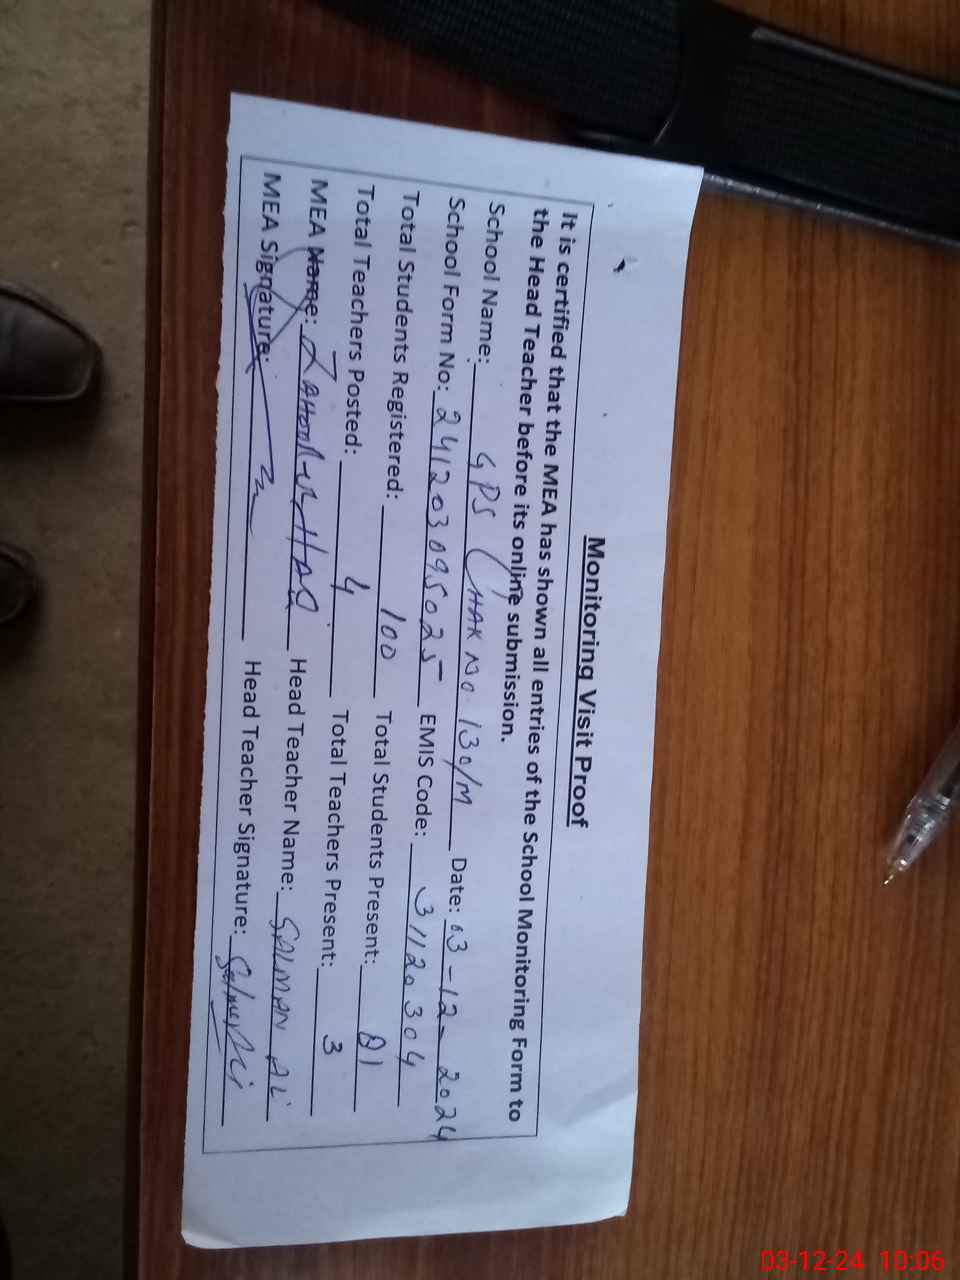 Monitoring Visit Proof
It is certified that the MEA has shown all entries of the School Monitoring Form to
the Head Teacher before its online submission.
School Name: GPS CHAK NO. 130/M Date: 03-12-2024
School Form No: 241203095025 EMIS Code: 31120304
Total Students Registered: 100 Total Students Present: 81
Total Teachers Posted: 4 Total Teachers Present: 3
MEA Name: ZAHOOR-UL-HAQ Head Teacher Name: SALMAN ALI
MEA Signature: Head Teacher Signature: Salman Ali
03-12-24 10:06